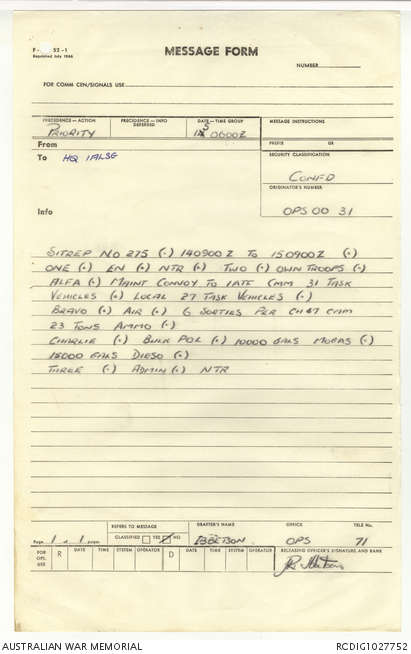 F- 52-1
Reprinted July 1966
MESSAGE FORM
NUMBER
FOR COMM CEN/SIGNALS USE
PRECEDENCE—ACTION
PRIORITY
PRECEDENCE—INFO
DEFERRED
DATE—TIME GROUP
0600Z
MESSAGE INSTRUCTIONS
From
PREFIX GR
To HQ 1ALSG
SECURITY CLASSIFICATION
CONFD
ORIGINATOR'S NUMBER
Info
OPS 00 31
SITREP NO 275 (.) 140900Z TO 150900Z (.)
ONE (.) EN (.) NTR (.) TWO (.) OWN TROOPS (.)
ALFA (.) MAINT CONVOY TO 1ATF CMM 31 TASK
VEHICLES (.) LOCAL 27 TASK VEHICLES (.)
BRAVO (.) AIR (.) 6 SORTIES PER CH47 CMM
23 TONS AMMO (.)
CHARLIE (.) BULK POL (.) 10000 GALS MOGAS (.)
15000 GALS DIESO (.)
THREE (.) ADMIN (.) NTR
Page 1 of 1 pages
REFERS TO MESSAGE
CLASSIFIED YES NO
DRAFTER'S NAME
IBBETSON
OFFICE
OPS
TELE No.
71
FOR OPS. USE
R DATE TIME SYSTEM OPERATOR
D DATE TIME SYSTEM OPERATOR
RELEASING OFFICER'S SIGNATURE AND RANK
AUSTRALIAN WAR MEMORIAL
RCDIG1027752